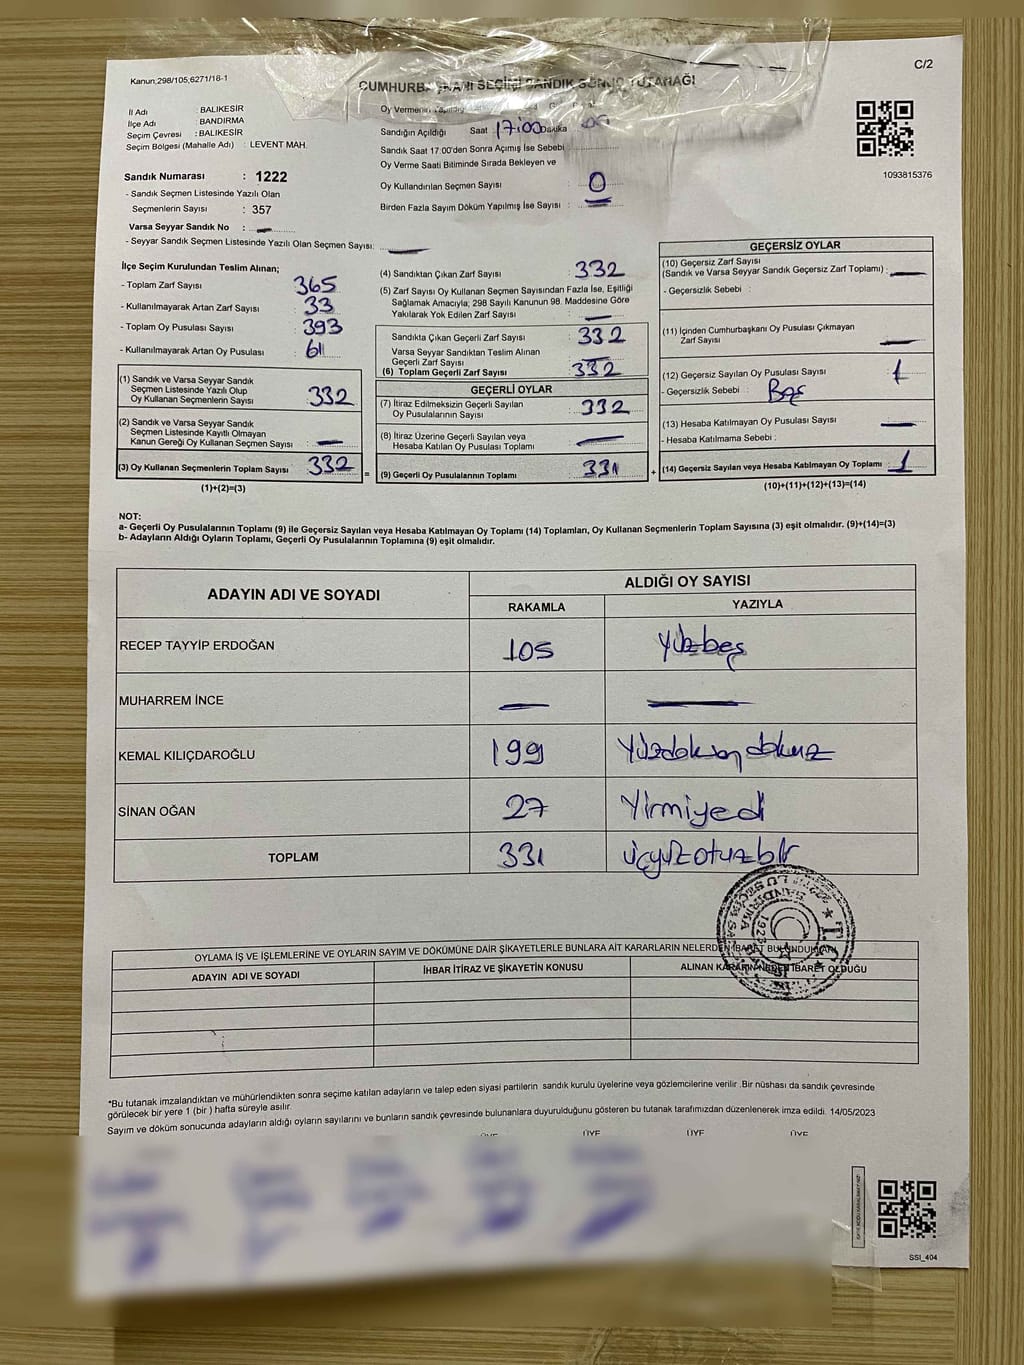 C/2
Kanun,298/105,6271/18-1
CUMHURB ŞKANI SEÇİMİ SANDIK SONUÇ TUTANAĞI
İl Adı : BALIKESİR
İlçe Adı : BANDIRMA
Seçim Çevresi : BALIKESİR
Seçim Bölgesi (Mahalle Adı) : LEVENT MAH.
Oy Vermenin Yapıldığı
Sandığın Açıldığı Saat 17:00 Dakika
Sandık Saat 17:00'den Sonra Açımış İse Sebebi :
Oy Verme Saati Bitiminde Sırada Bekleyen ve
Oy Kullandırılan Seçmen Sayısı : 0
Birden Fazla Sayım Döküm Yapılmış İse Sayısı : —
1093815376
Sandık Numarası : 1222
- Sandık Seçmen Listesinde Yazılı Olan
Seçmenlerin Sayısı : 357
Varsa Seyyar Sandık No : —
- Seyyar Sandık Seçmen Listesinde Yazılı Olan Seçmen Sayısı: —
İlçe Seçim Kurulundan Teslim Alınan;
- Toplam Zarf Sayısı : 365
- Kullanılmayarak Artan Zarf Sayısı : 33
- Toplam Oy Pusulası Sayısı : 393
- Kullanılmayarak Artan Oy Pusulası : 61
(1) Sandık ve Varsa Seyyar Sandık
Seçmen Listesinde Yazılı Olup
Oy Kullanan Seçmenlerin Sayısı : 332
(2) Sandık ve Varsa Seyyar Sandık
Seçmen Listesinde Kayıtlı Olmayan
Kanun Gereği Oy Kullanan Seçmen Sayısı : —
(3) Oy Kullanan Seçmenlerin Toplam Sayısı : 332 =
(1)+(2)=(3)
(4) Sandıktan Çıkan Zarf Sayısı : 332
(5) Zarf Sayısı Oy Kullanan Seçmen Sayısından Fazla İse, Eşitliği
Sağlamak Amacıyla; 298 Sayılı Kanunun 98. Maddesine Göre
Yakılarak Yok Edilen Zarf Sayısı : —
Sandıkta Çıkan Geçerli Zarf Sayısı : 332
Varsa Seyyar Sandıktan Teslim Alınan
Geçerli Zarf Sayısı : —
(6) Toplam Geçerli Zarf Sayısı : 332
GEÇERLİ OYLAR
(7) İtiraz Edilmeksizin Geçerli Sayılan
Oy Pusulalarının Sayısı : 332
(8) İtiraz Üzerine Geçerli Sayılan veya
Hesaba Katılan Oy Pusulası Toplamı : —
(9) Geçerli Oy Pusulalarının Toplamı : 331 +
GEÇERSİZ OYLAR
(10) Geçersiz Zarf Sayısı
(Sandık ve Varsa Seyyar Sandık Geçersiz Zarf Toplamı) : —
- Geçersizlik Sebebi :
(11) İçinden Cumhurbaşkanı Oy Pusulası Çıkmayan
Zarf Sayısı : —
(12) Geçersiz Sayılan Oy Pusulası Sayısı : 1
- Geçersizlik Sebebi :
(13) Hesaba Katılmayan Oy Pusulası Sayısı : —
- Hesaba Katılmama Sebebi :
(14) Geçersiz Sayılan veya Hesaba Katılmayan Oy Toplamı : 1
(10)+(11)+(12)+(13)=(14)
NOT:
a- Geçerli Oy Pusulalarının Toplamı (9) ile Geçersiz Sayılan veya Hesaba Katılmayan Oy Toplamı (14) Toplamları, Oy Kullanan Seçmenlerin Toplam Sayısına (3) eşit olmalıdır. (9)+(14)=(3)
b- Adayların Aldığı Oyların Toplamı, Geçerli Oy Pusulalarının Toplamına (9) eşit olmalıdır.
ADAYIN ADI VE SOYADI ALDIĞI OY SAYISI
RAKAMLA YAZIYLA
RECEP TAYYİP ERDOĞAN 105 Yüzbeş
MUHARREM İNCE — —
KEMAL KILIÇDAROĞLU 199 Yüzdoksandokuz
SİNAN OĞAN 27 Yirmiyedi
TOPLAM 331 üçyüzotuzbir
OYLAMA İŞ VE İŞLEMLERİNE VE OYLARIN SAYIM VE DÖKÜMÜNE DAİR ŞİKAYETLERLE BUNLARA AİT KARARLARIN NELERDEN İBARET BULUNDUĞU
ADAYIN ADI VE SOYADI İHBAR İTİRAZ VE ŞİKAYETİN KONUSU ALINAN KARARIN NEDEN İBARET OLDUĞU
*Bu tutanak imzalandıktan ve mühürlendikten sonra seçime katılan adayların ve talep eden siyasi partilerin sandık kurulu üyelerine veya gözlemcilerine verilir .Bir nüshası da sandık çevresinde
görülecek bir yere 1 (bir ) hafta süreyle asılır.
Sayım ve döküm sonucunda adayların aldığı oyların sayılarını ve bunların sandık çevresinde bulunanlara duyurulduğunu gösteren bu tutanak tarafımızdan düzenlenerek imza edildi. 14/05/2023
ÜYE ÜYE ÜYE ÜYE
SSI_404